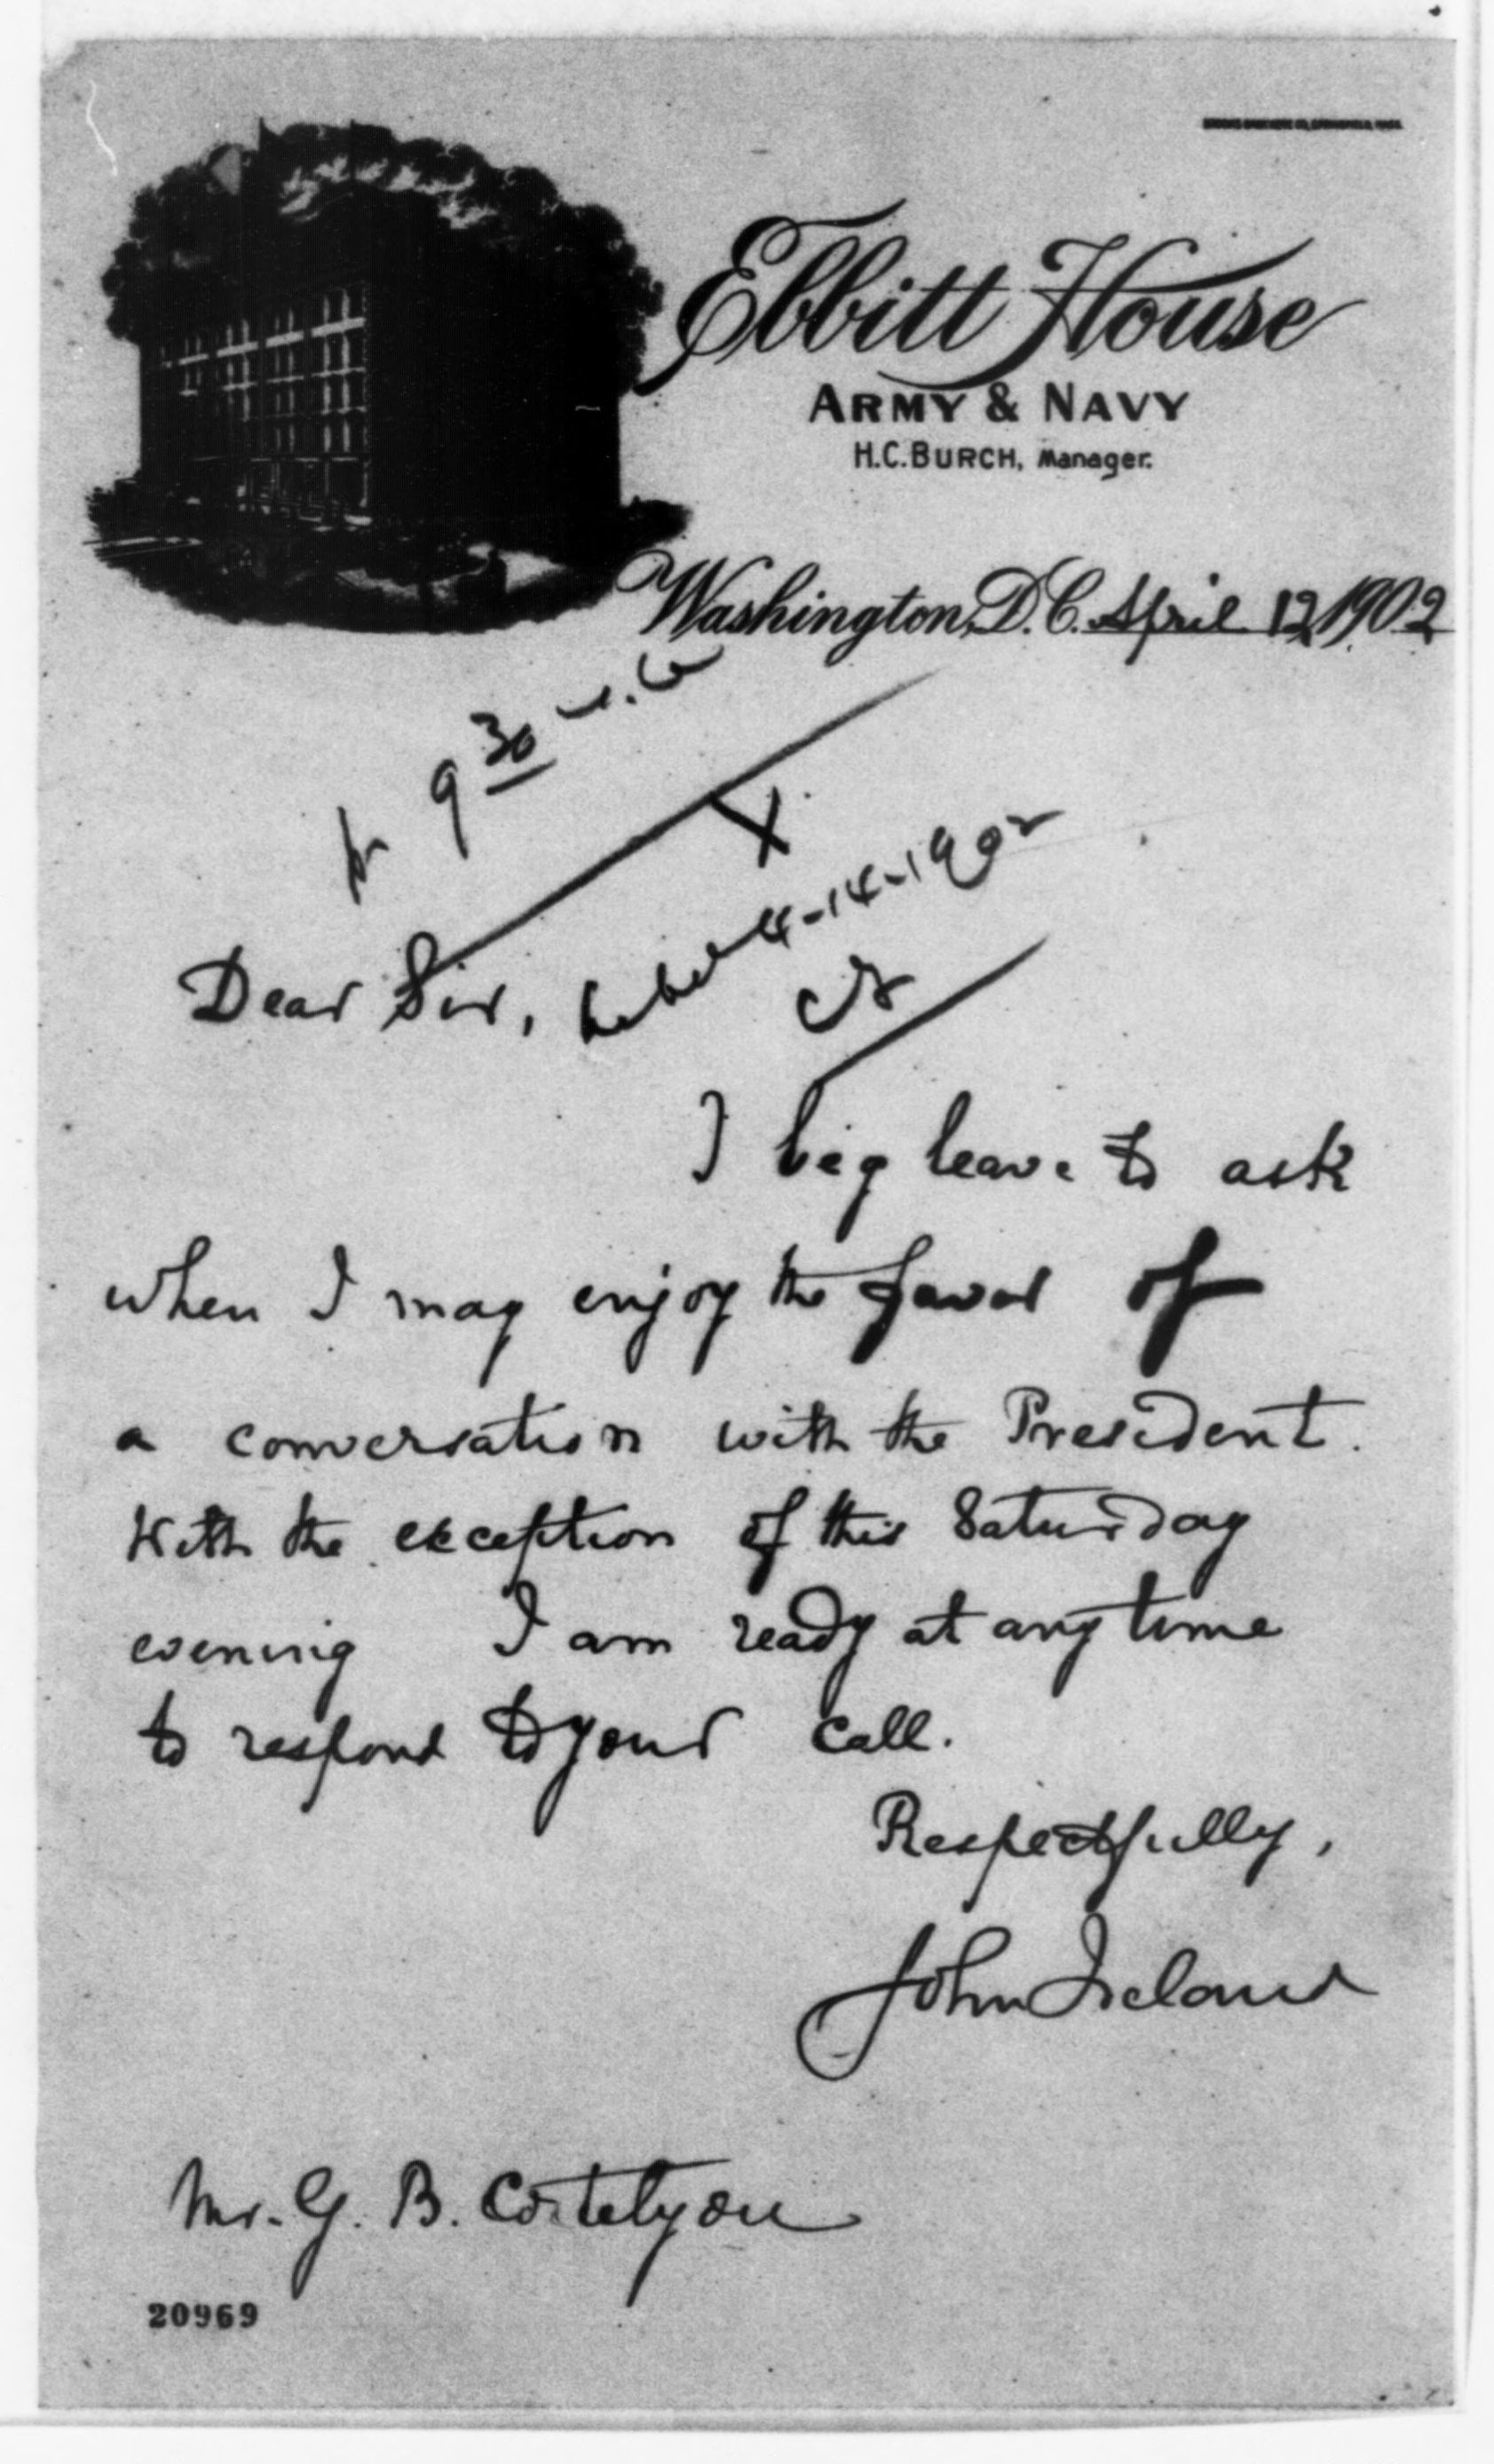 Ebbitt House
ARMY & NAVY
H.C. BURCH, Manager.
Washington, D.C. April 12, 1902
9 30
X
4-14-1902
Dear Sir,
I beg leave to ask
when I may enjoy the favor of
a conversation with the President.
With the exception of this Saturday
evening I am ready at any time
to respond to your call.
Respectfully,
John Ireland
Mr. G. B. Cortelyou
20969